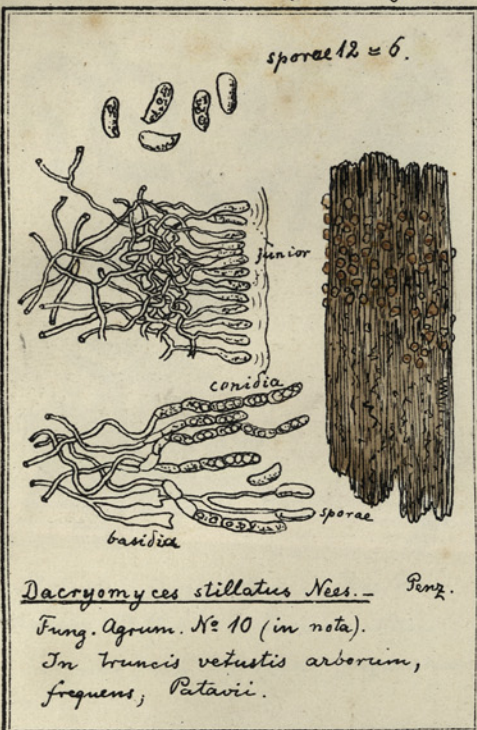 sporae 12 ≍ 6.
junior
conidia
sporae
basidia
Dacryomyces stillatus Nees.— Penz.
Fung. Agrum. Nº 10 (in nota).
In truncis vetustis arborum,
frequens; Patavii.